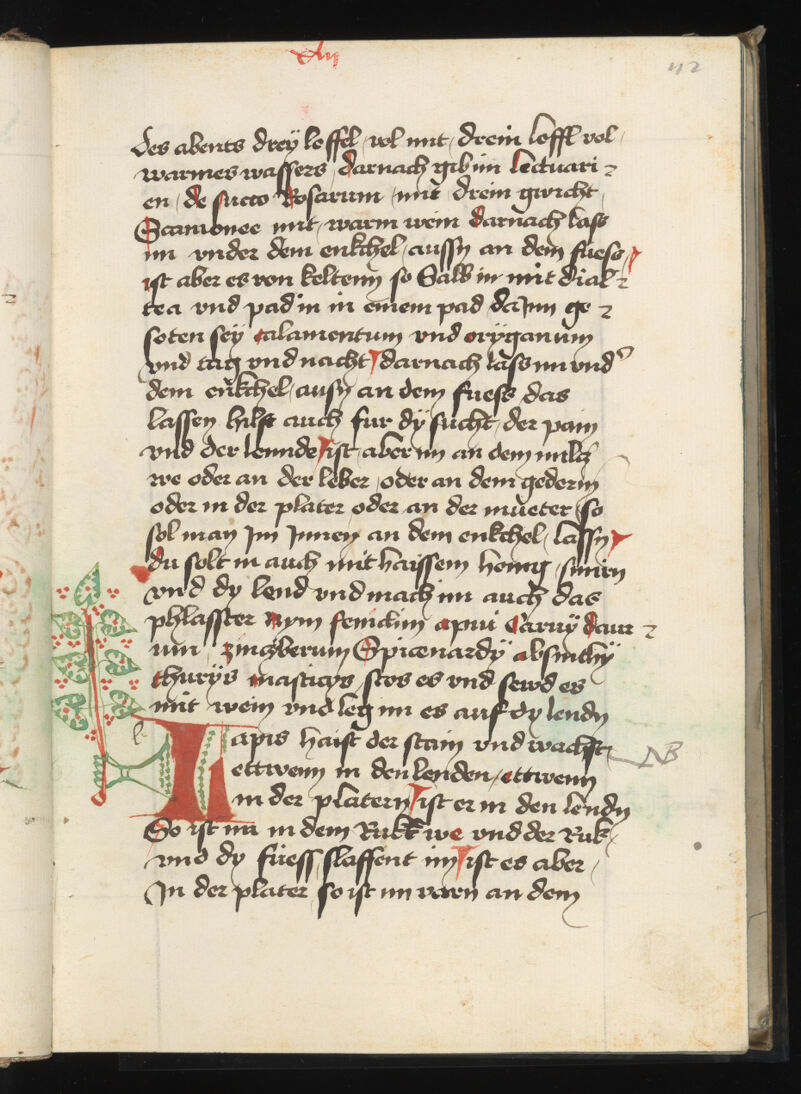 42
des abents dreÿ loffel vol mit drein loffl vol
warmes wassers darnach gib im lectuari
en de succo Rosarum mit drein gwicht
Scamonee mit warm wein darnach lass
im vnder dem enkchel aussn an dem fuess
ist aber es von keltenn so Salb in mit dial
tea vnd pad in in einem pad da Inn ge
soten seÿ calamentum vnd orÿganum
vnd tag vnd nacht darnach lass im vnd
dem enkchel ausn an dem fuess das
lassen hilft auch fur dÿ sucht der pain
vnd der lennde ist aber im an dem milcz
we oder an der leber oder an dem gederm
oder in der plater oder an der mueter so
sol man Im Innen an dem enkchel lassn
du solt in auch mit haissem honig smirn
vnd dy lend vnd mach im auch das
phlasster Nym feniclim apii Caruÿ daur
um zinziberum Spicenardÿ absinthÿ
thurÿs masticÿs stos es vnd sewd es
mit wein vnd leg im es auf dy lendn
Lapis haist der stain vnd wachst
NB
ettwenn in den lenden ettwenn
in der platern ist er in den lendn
So ist im in dem Rukk we vnd der Ruk
vnd dy fuess slaffent im ist es aber
In der plater so ist im vorn an dem